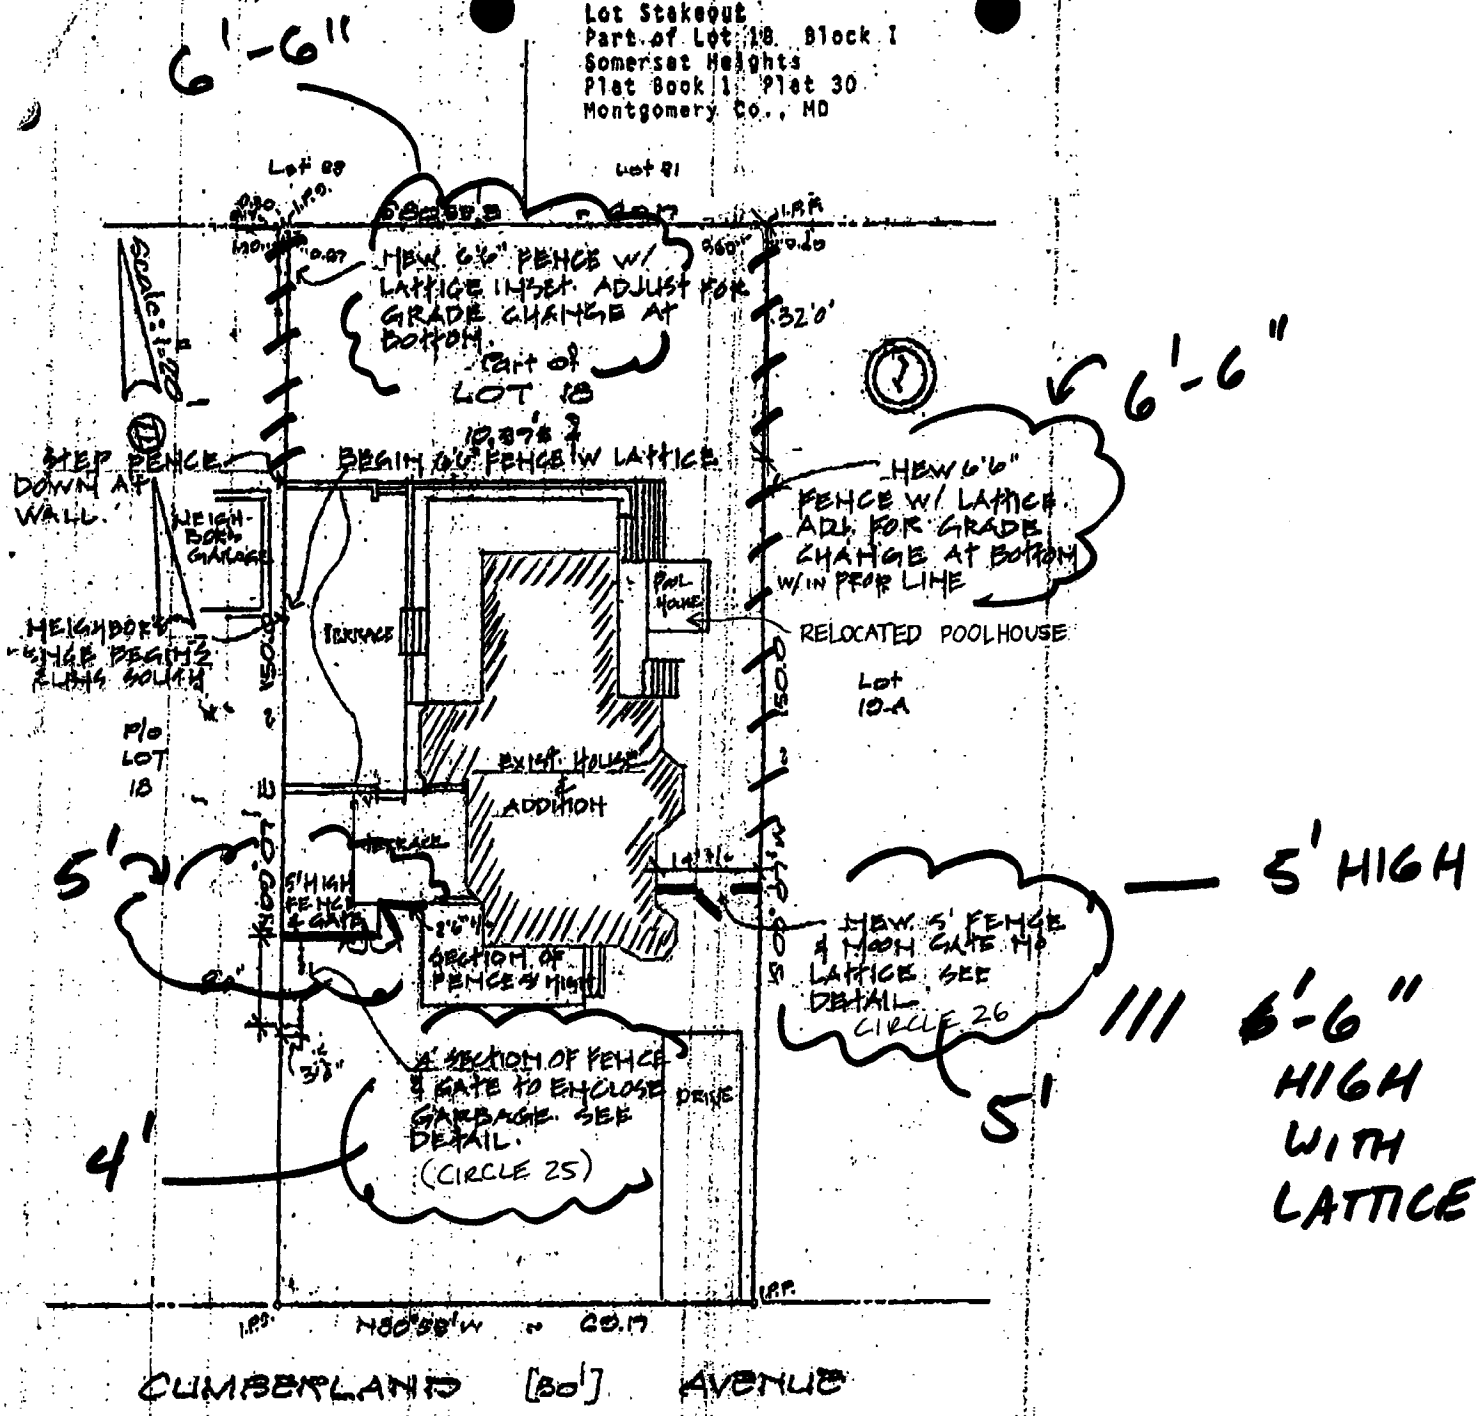 Lot Stakeout
Part of Lot 18 Block I
Somerset Heights
Plat Book 1 Plat 30
Montgomery Co., MD
6'-6"
Lot 81
I.P.F.
NEW 6'6" FENCE W/
LATTICE INSET. ADJUST FOR
GRADE CHANGE AT
BOTTOM.
Part of
LOT 18
Scale: 1"=20'
32'0"
6'-6"
STEP FENCE
DOWN AT
WALL.
BEGIN 6'6" FENCE W LATTICE
NEIGH-
BORS
GARAGE
NEW 6'6"
FENCE W/ LATTICE
ADJ. FOR GRADE
CHANGE AT BOTTOM
W/IN PROP LINE
POOL
HOUSE
RELOCATED POOLHOUSE
NEIGHBORS
FENCE BEGINS
RUNS SOUTH
TERRACE
150.0
150.0
Lot
P/O
LOT
18
EXIST. HOUSE
&
ADDITION
TERRACE
5'
5' HIGH
FENCE
& GATE
SECTION OF
FENCE 5' HIGH
NEW 5' FENCE
& MOON GATE NO
LATTICE SEE
DETAIL
CIRCLE 26
5'
— 5' HIGH
/// 6'-6"
HIGH
WITH
LATTICE
4' SECTION OF FENCE
& GATE TO ENCLOSE
GARBAGE. SEE
DETAIL.
(CIRCLE 25)
4'
DRIVE
I.P.F.
N80°58'W ~ 60.17
CUMBERLAND [50'] AVENUE